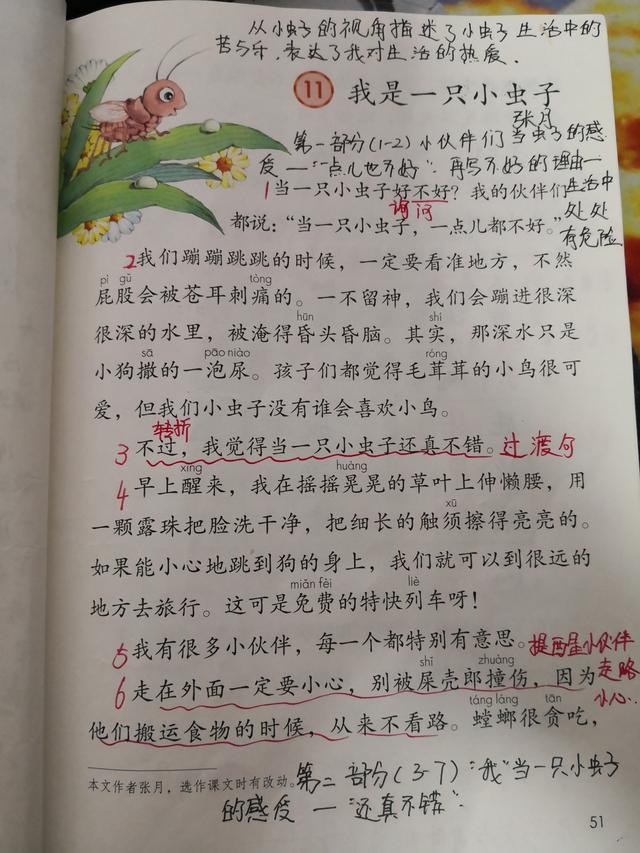 从小虫子的视角描述了小虫子生活中的
苦与乐，表达了我对生活的热爱．
11 我是一只小虫子
张月
第一部分(1-2)小伙伴们当虫子的感
受一"一点儿也不好"．再写不好的理由一
生活中
处处
有危险
1当一只小虫子好不好？我的伙伴们
询问
都说："当一只小虫子，一点儿都不好。"
2我们蹦蹦跳跳的时候，一定要看准地方，不然
pì gu tòng
屁股会被苍耳刺痛的。一不留神，我们会蹦进很深
hūn shí
很深的水里，被淹得昏头昏脑。其实，那深水只是
sā pāo niào róng
小狗撒的一泡尿。孩子们都觉得毛茸茸的小鸟很可
爱，但我们小虫子没有谁会喜欢小鸟。
转折
3 不过，我觉得当一只小虫子还真不错。过渡句
xǐng huàng
4 早上醒来，我在摇摇晃晃的草叶上伸懒腰，用
xū
一颗露珠把脸洗干净，把细长的触须擦得亮亮的。
如果能小心地跳到狗的身上，我们就可以到很远的
miǎn fèi liè
地方去旅行。这可是免费的特快列车呀！
5 我有很多小伙伴，每一个都特别有意思。提醒小伙伴
走路
小心．
shǐ zhuàng
6 走在外面一定要小心，别被屎壳郎撞伤，因为
táng láng tān
他们搬运食物的时候，从来不看路。螳螂很贪吃，
本文作者张月，选作课文时有改动。
第二部分(3-7)："我"当一只小虫子
的感受一"还真不错"．
51